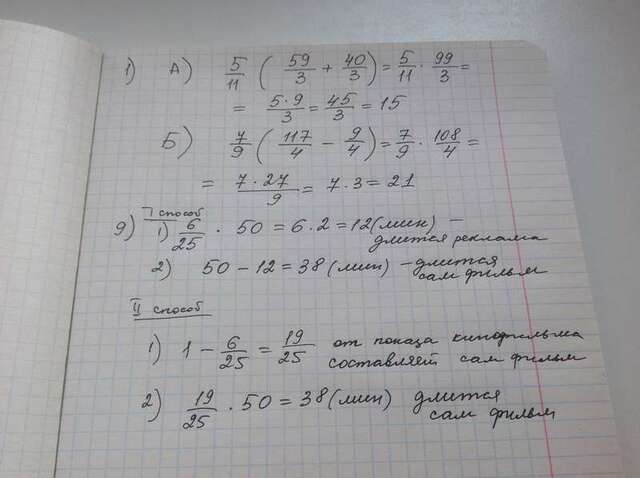 1) А) 5/11 ( 59/3 + 40/3 ) = 5/11 · 99/3 =
= 5·9/3 = 45/3 = 15
Б) 7/9 ( 117/4 − 9/4 ) = 7/9 · 108/4 =
= 7·27/9 = 7·3 = 21
I способ
9) 1) 6/25 · 50 = 6·2 = 12 (мин) –
длится реклама
2) 50 − 12 = 38 (мин) – длится
сам фильм
II способ
1) 1 − 6/25 = 19/25 от показа кинофильма
составляет сам фильм
2) 19/25 · 50 = 38 (мин) длится
сам фильм